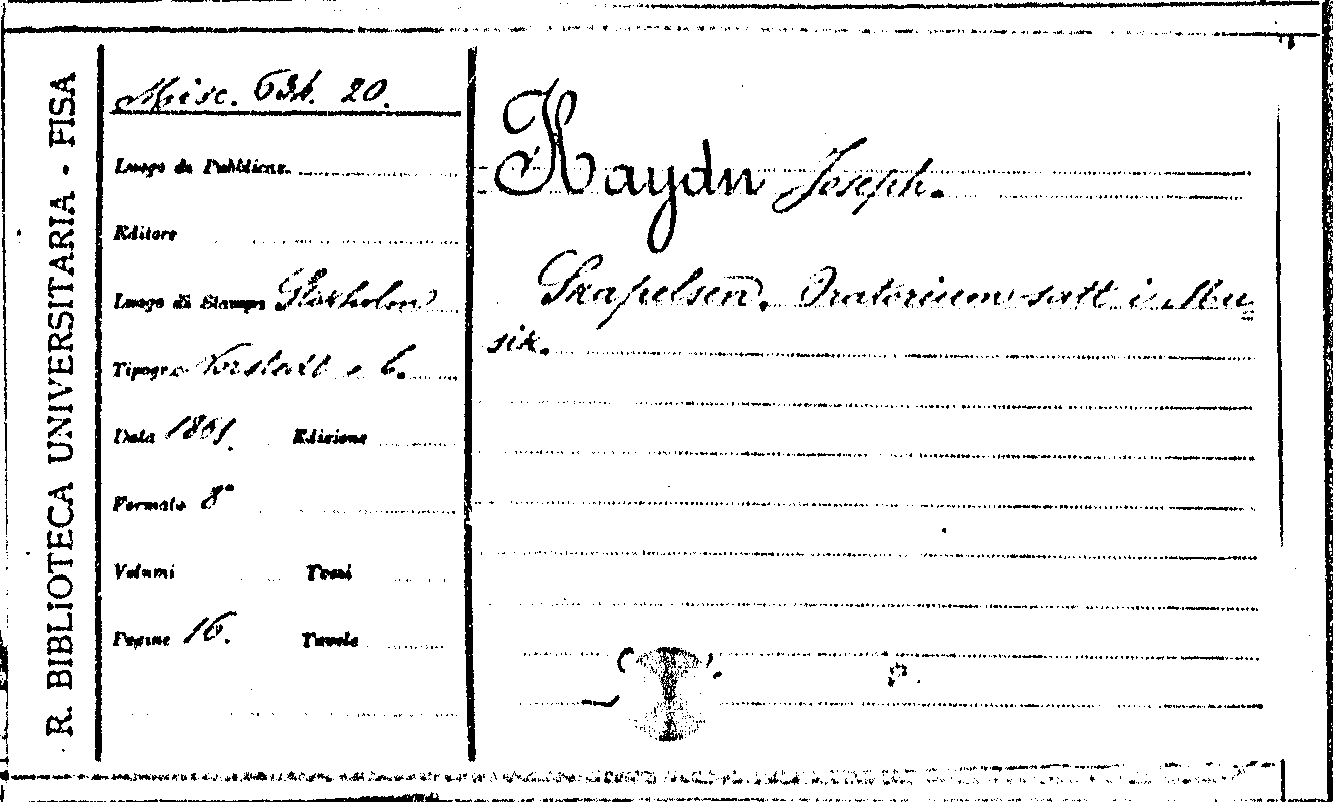 R. BIBLIOTECA UNIVERSITARIA - PISA
Misc. 634. 20.
Luogo di Pubblicaz.
Editore
Luogo di Stampa Stokholm
Tipogr. Norstedt e C.
Data 1861. Edizione
Formato 8°
Volumi Tomi
Pagine 16. Tavole
Haydn Joseph.
Skapelsen. Oratorium satt i Mu=
sik.